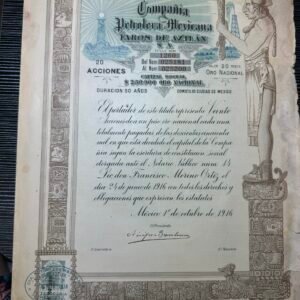 Compañia
Petrolera Mexicana
FAROS DE AZTLÁN
S. A.
20
ACCIONES
Del Num
Al Num
VALOR 20 PESOS
ORO NACIONAL
CAPITAL SOCIAL
$ 250,000 ORO NACIONAL
DURACION 50 AÑOS
DOMICILIO CIUDAD DE MEXICO
El portador de este título representa Veinte
acciones de a un peso oro nacional cada una
totalmente pagadas de las doscientas cincuenta
mil en que está dividido el capital de la Compa
ñía según la escritura de constitución social
otorgada ante el Notario Público num. 14
Lic. don Francisco Merino Ortiz, el
día 24 de junio de 1916 con todos los derechos y
obligaciones que expresan los estatutos
México 1º de octubre de 1916
El Presidente